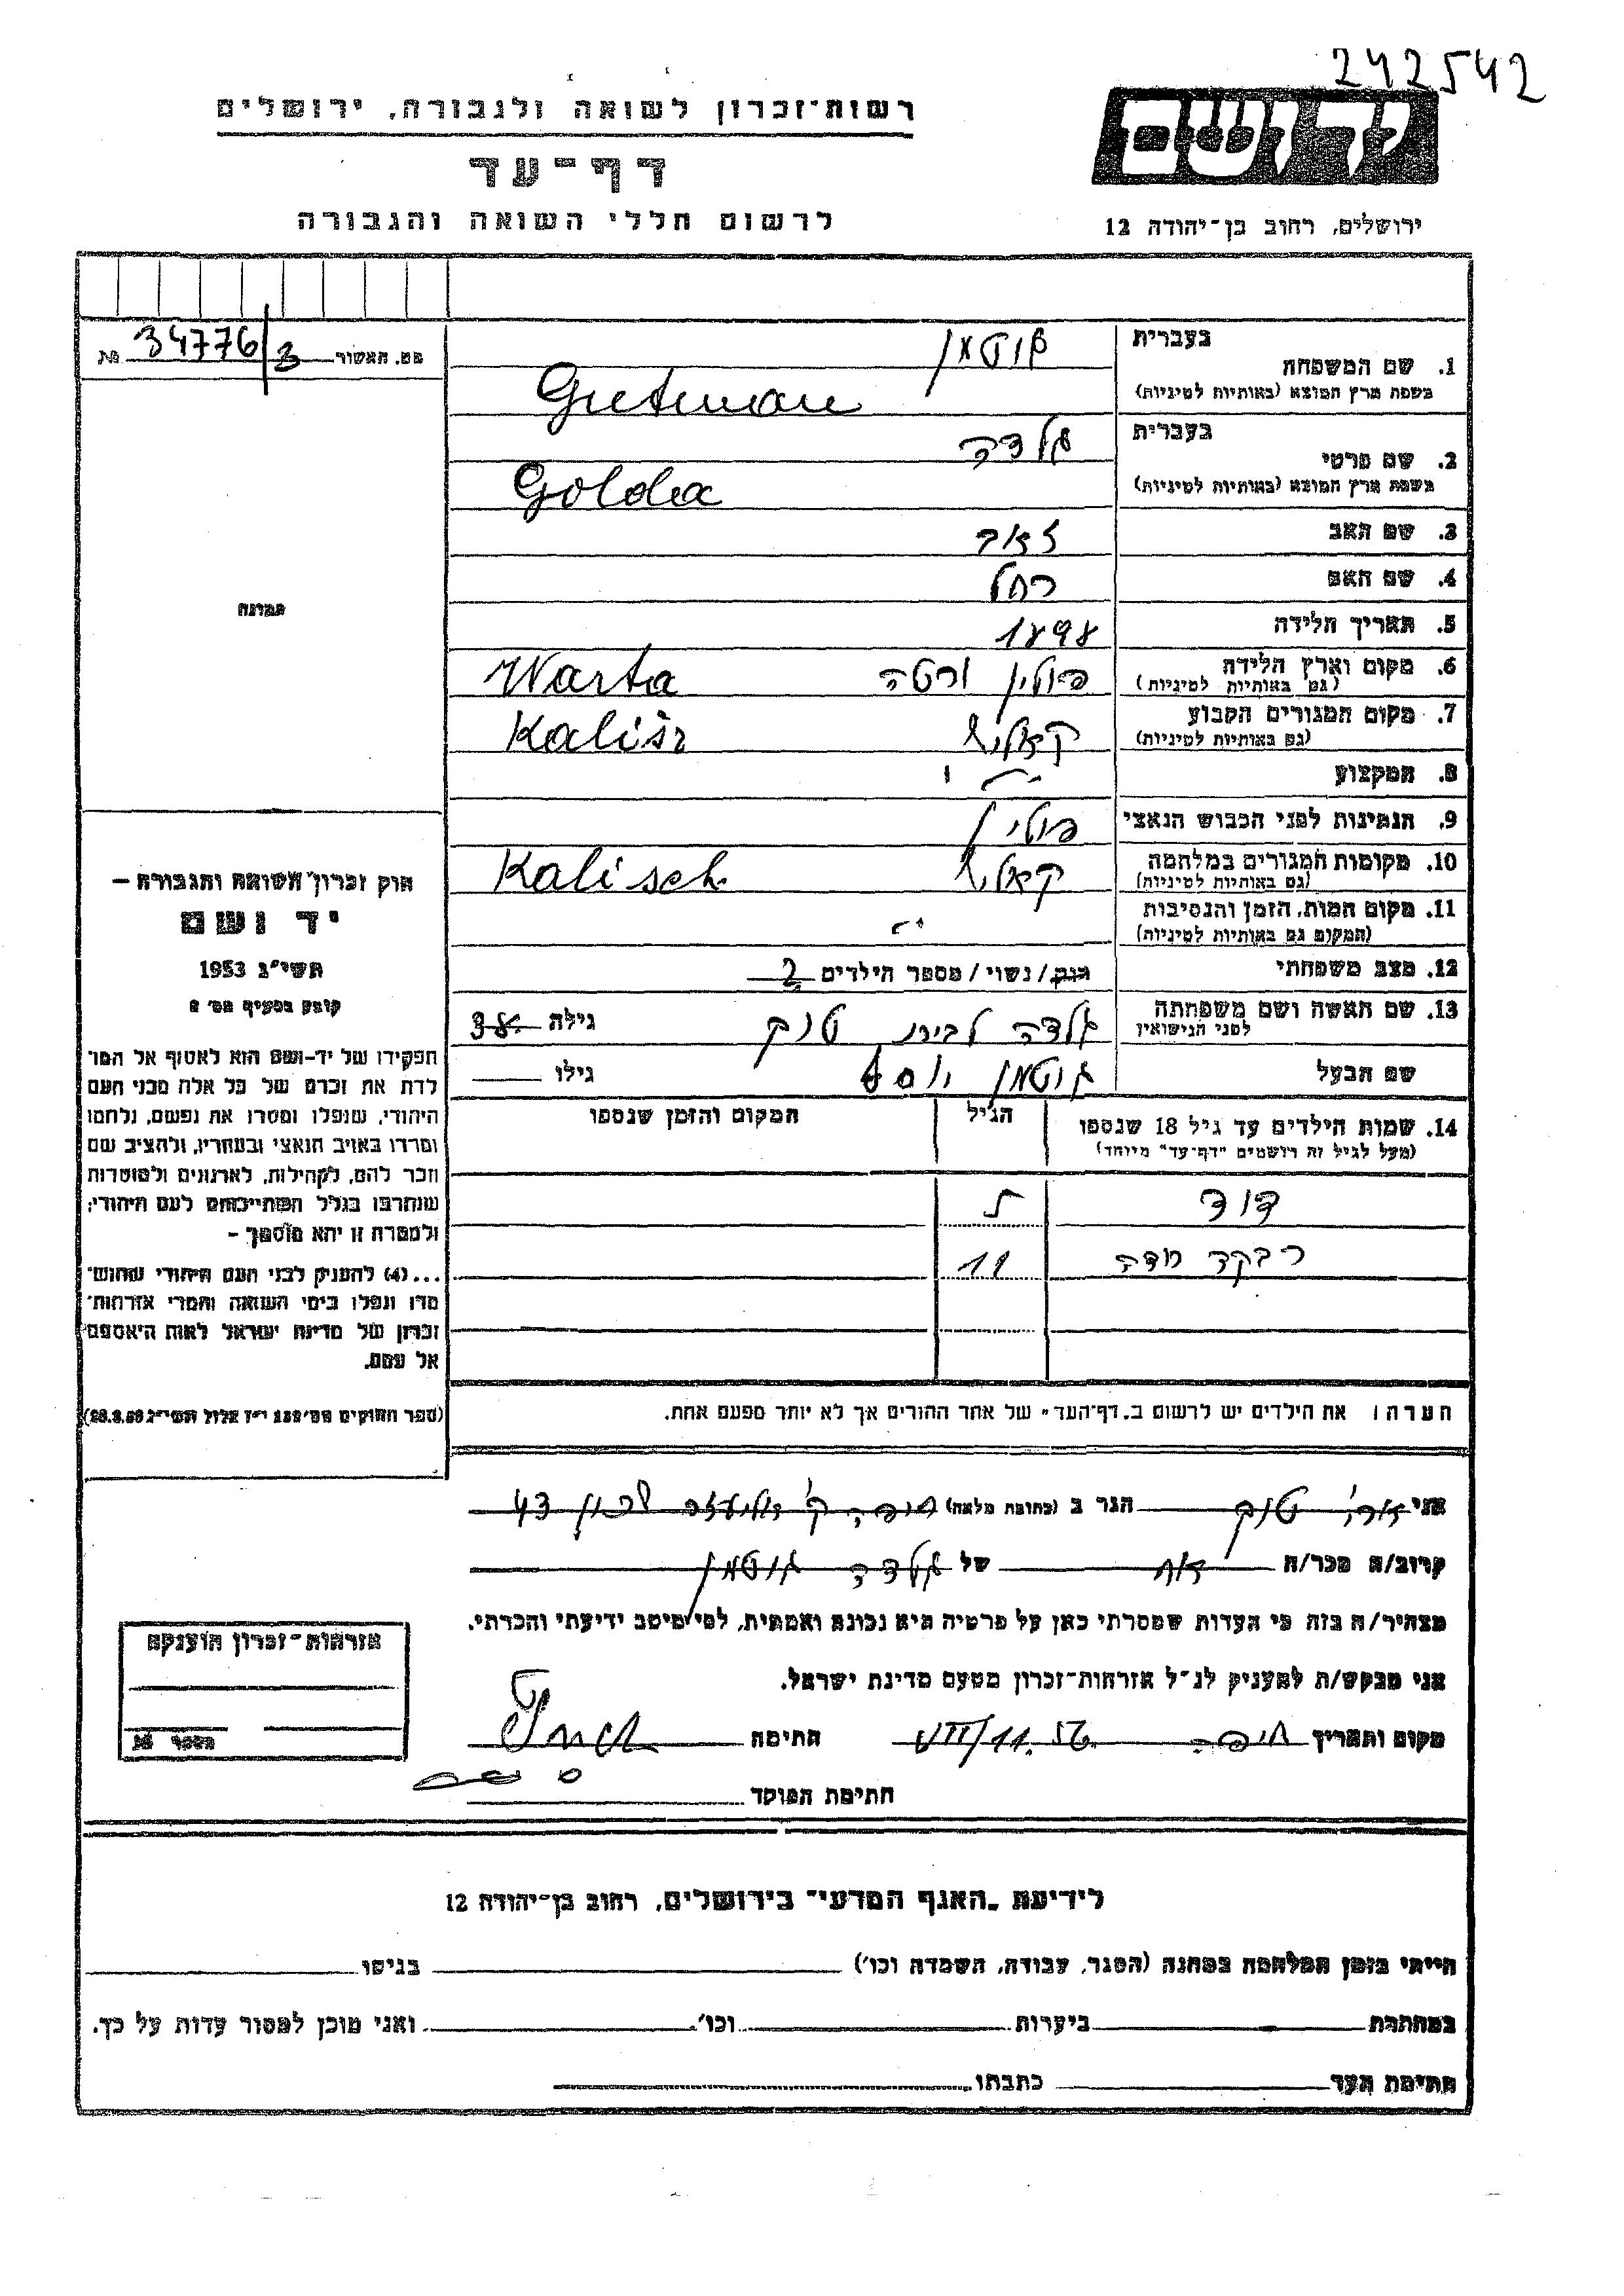 242542
ידושם
רשות־זכרון לשואה ולגבורה, ירושלים
דף־עד
לרשום חללי השואה והגבורה
ירושלים, רחוב בן־יהודה 12
מס. האשור 34776/3 .מת
בעברית
1. שם המשפחה גוטמאן
בשפת ארץ המוצא (באותיות לטיניות) Gutman
בעברית גלדה
2. שם פרטי
בשפת ארץ המוצא (באותיות לטיניות) Golda
3. שם האב זאב
4. שם האם רחל
5. תאריך הלידה 1898
6. מקום וארץ הלידה פולין ורטה Warta
(גם באותיות לטיניות)
7. מקום המגורים הקבוע קאליש Kalisz
(גם באותיות לטיניות)
8. המקצוע
9. הנתינות לפני הכבוש הנאצי פולין
10. מקומות המגורים במלחמה קאליש Kalisch
(גם באותיות לטיניות)
11. מקום המות, הזמן והנסיבות
(המקום גם באותיות לטיניות)
12. מצב משפחתי רווק/נשוי/מספר הילדים 2
13. שם האשה ושם משפחתה גלדה לבית טנק גילה 38
לפני הנישואין
שם הבעל גוטמן יוסף גילו
14. שמות הילדים עד גיל 18 שנספו הגיל המקום והזמן שנספו
(מעל לגיל זה רושמים "דף־עד" מיוחד)
דוד
רבקה 11
תמונה
חוק זכרון השואה והגבורה –
יד ושם
תשי"ג 1953
קובע בסעיף מס' 2
תפקידו של יד-ושם הוא לאסוף אל המו־
לדת את זכרם של כל אלה מבני העם
היהודי, שנפלו ומסרו את נפשם, נלחמו
ומרדו באויב הנאצי ובעוזריו, ולהציב שם
וזכר להם, לקהילות, לארגונים ולמוסדות
שנחרבו בגלל השתייכותם לעם היהודי;
ולמטרה זו יהא מוסמך –
...(4) להעניק לבני העם היהודי שהוש־
מדו ונפלו בימי השואה והמרי אזרחות־
זכרון של מדינת ישראל לאות היאספם
אל עמם.
(ספר החוקים מס' 132 י"ז אלול תשי"ג 28.8.53)
הערה: את הילדים יש לרשום ב„דף־העד" של אחד ההורים אך לא יותר מפעם אחת.
אני טנק הגר ב (כתובת מלאה) חיפה ק' 43
קרוב/ה מכר/ה אח של גלדה גוטמן
מצהיר/ה בזה כי העדות שמסרתי כאן על פרטיה היא נכונה ואמתית, לפי מיטב ידיעתי והכרתי.
אני מבקש/ת להעניק לנ"ל אזרחות־זכרון מטעם מדינת ישראל.
מקום ותאריך חיפה 11.56 חתימה
חתימת הפוקד
אזרחות־זכרון הוענקה
מספר
לידיעת „האגף המדעי" בירושלים, רחוב בן־יהודה 12
הייתי בזמן המלחמה במחנה (הסגר, עבודה, השמדה וכו') בגיטו
במחתרת ביערות וכו' ואני מוכן למסור עדות על כך.
חתימת העד כתבתו